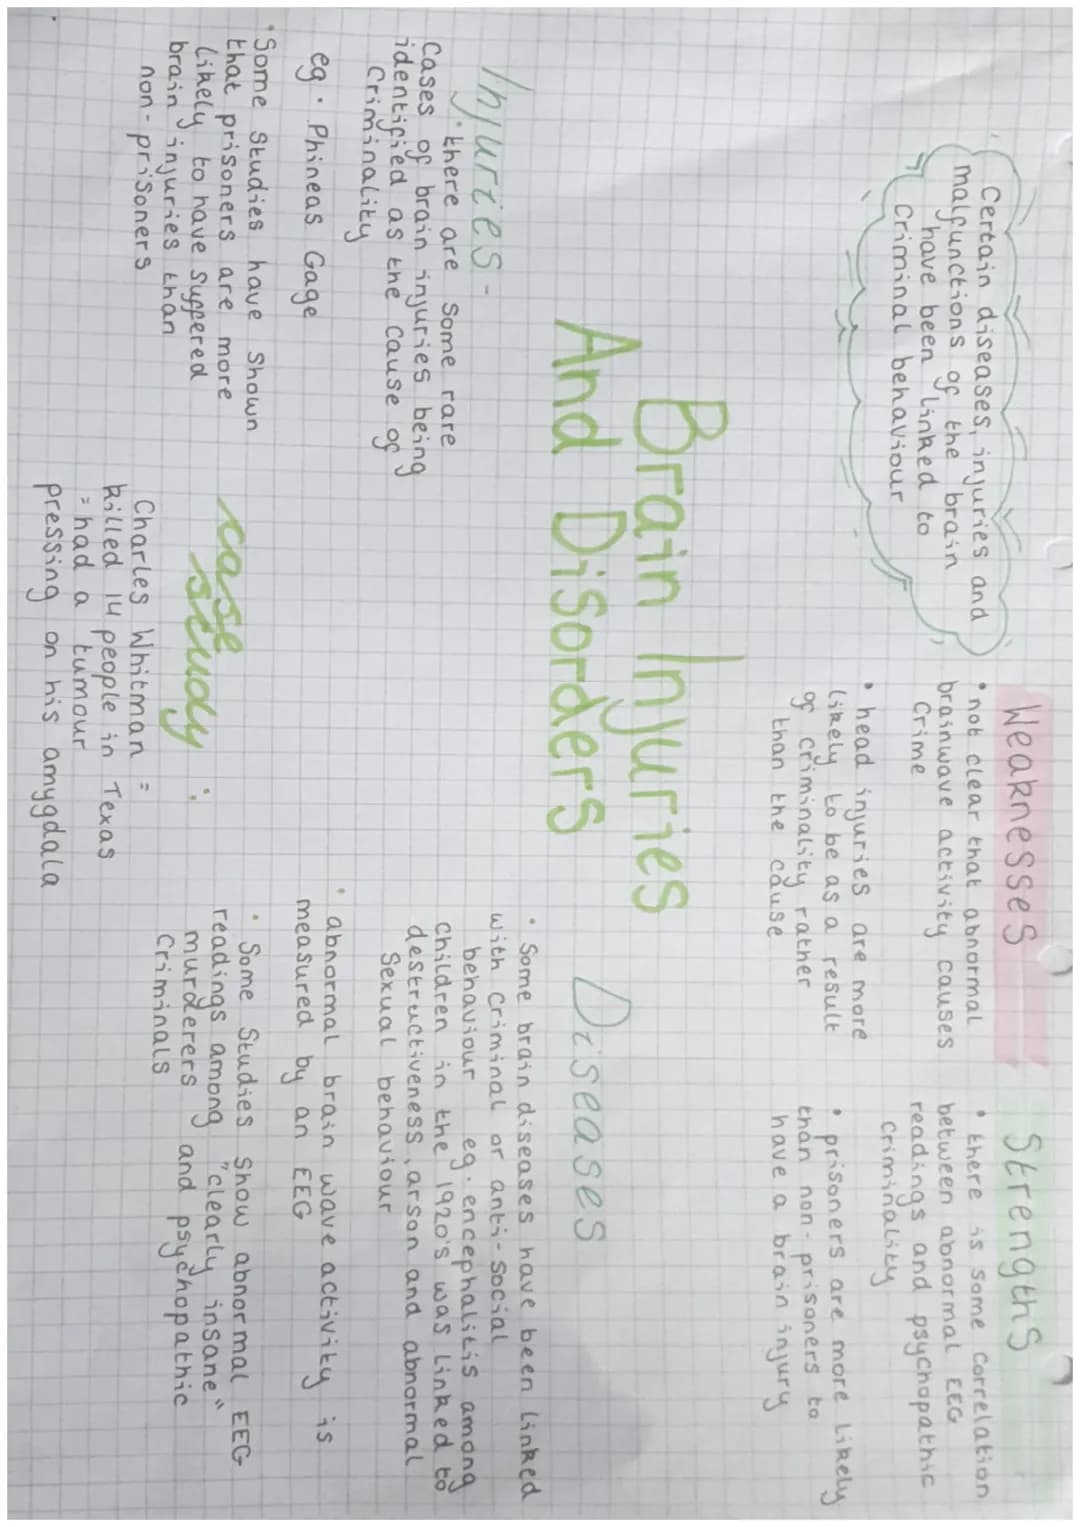 Certain diseases, injuries and
malfunctions of the brain
have been linked to
Criminal behaviour
Weaknesses
• not clear that abnormal
brainwave activity causes
Crime
• head injuries are more
likely to be as a result
of criminality rather
than the cause
Strengths
• there is some correlation
between abnormal EEG
readings and psychopathic
criminality
• prisoners are more likely
than non-prisoners to
have a brain injury
Brain Injuries
And Disorders
Injuries -
• there are some rare
Cases of brain injuries being
identified as the cause of
Criminality
eg. Phineas Gage
• Some Studies have shown
that prisoners are more
likely to have suffered
brain injuries than
non-prisoners
case
study:
Charles Whitman =
killed 14 people in Texas
= had a tumour
pressing on his amygdala
Diseases
• Some brain diseases have been linked
with criminal or anti-social
behaviour eg. encephalitis among
children in the 1920's was linked to
destructiveness, arson and abnormal
Sexual behaviour
• abnormal brain wave activity is
measured by an EEG
• Some Studies Show abnormal EEG
readings among "clearly insane"
murderers and psychopathic
Criminals